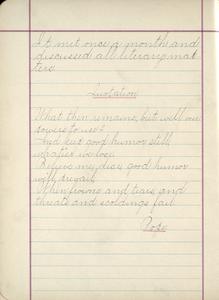 It met once a month and
discussed all literary mat
ters.
Quotation
What then remains, but well our
power to use?
And keep good humor still
whate'er we lose.
Believe me, dear, good humor
will prevail
When frowns and tears, and
threats and scoldings fail
Pope